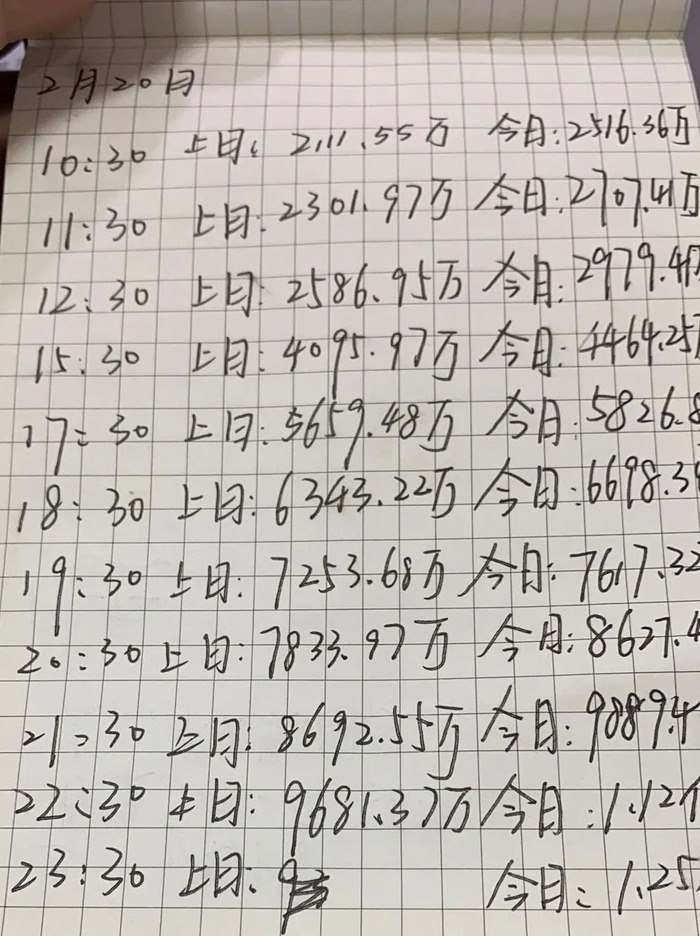 2月20日
10:30 上日: 2111.55万 今日:2516.36万
11:30 上日:2301.97万 今日:2707.41万
12:30 上日:2586.95万 今日:2979.4
15:30 上日:4095.97万 今日:4464.25
17:30 上日:5659.48万 今日:5826.8
18:30 上日:6343.22万 今日:6698.3
19:30 上日:7253.68万 今日:7617.32
20:30 上日:7833.97万 今日:8627.4
21:30 上日:8692.55万 今日:9889.4
22:30 上日:9681.37万 今日:1.12亿
23:30 上日: 今日:1.25